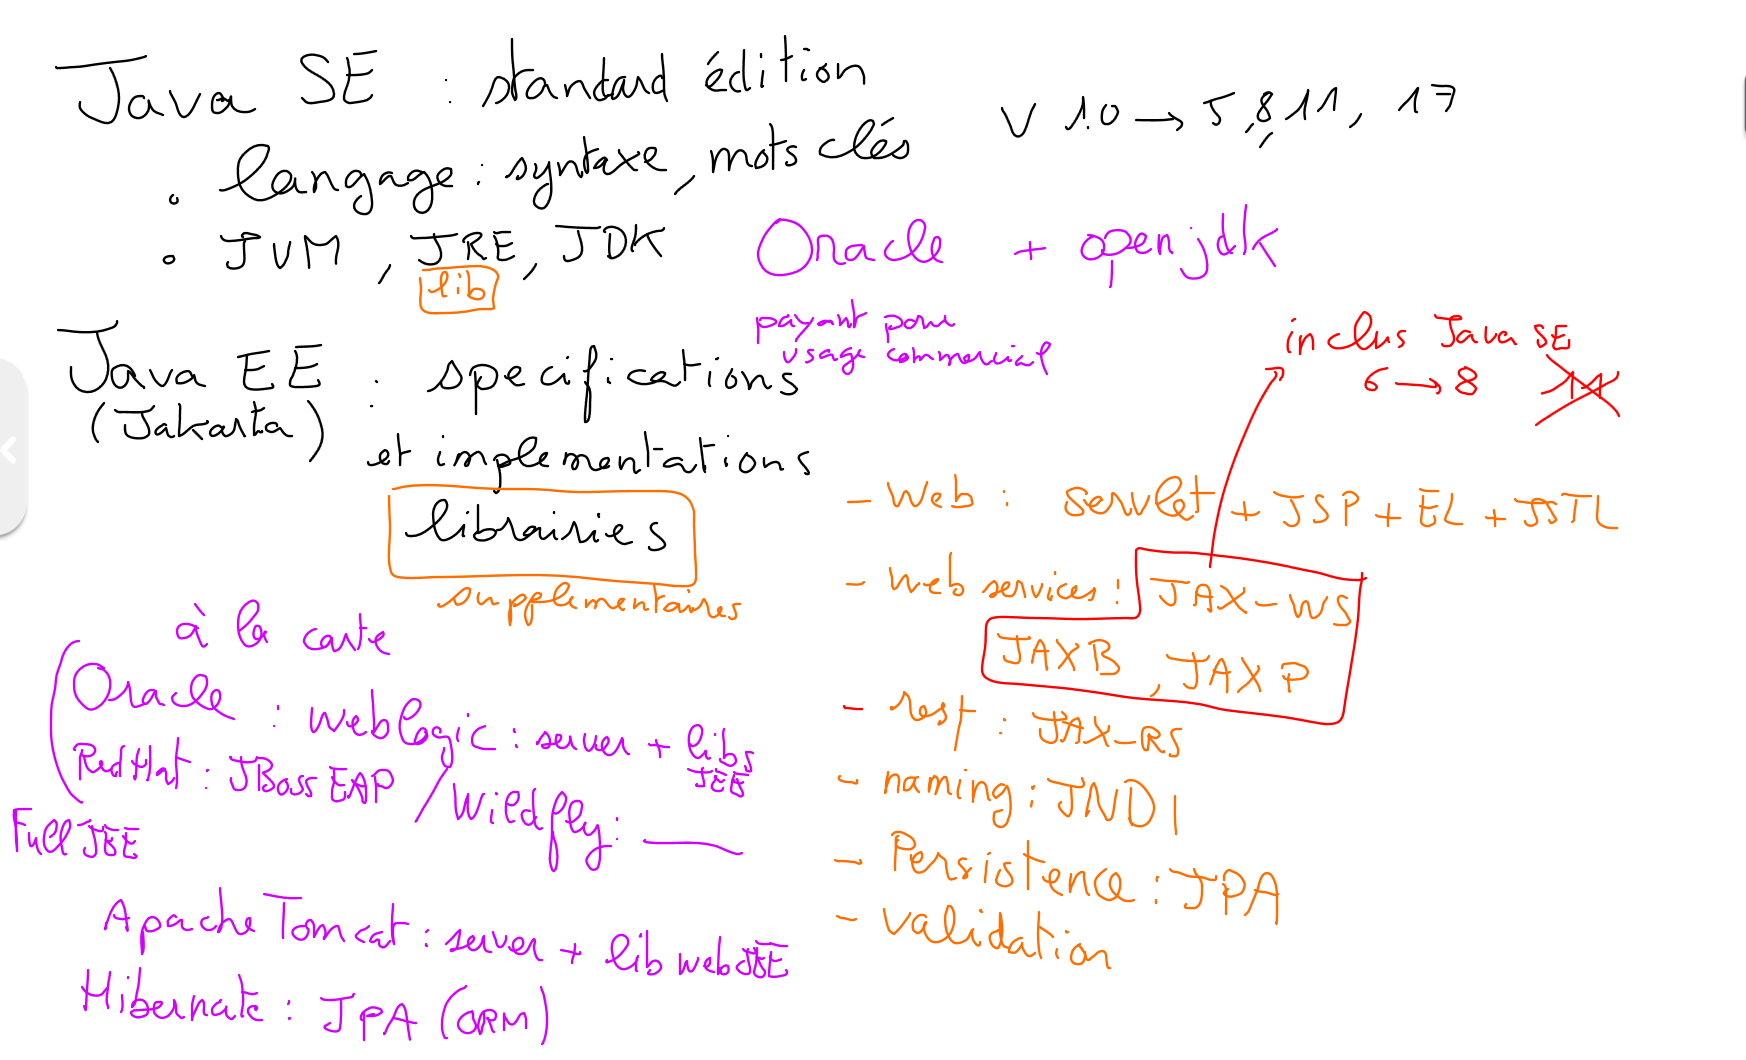 Java SE : standard édition
V 1.0 → 5, 8, 11, 17
• langage : syntaxe, mots clés
• JVM, JRE, JDK
lib
Oracle + openjdk
payant pour
usage commercial
Java EE : specifications
(Jakarta)
et implementations
librairies
supplementaires
inclus Java SE
6 → 8 11
- Web : servlet + JSP + EL + JSTL
- web services : JAX-WS
JAXB, JAXP
- rest : JAX-RS
- naming : JNDI
- Persistence : JPA
- validation
à la carte
Oracle : weblogic : server + libs
JEE
RedHat : JBoss EAP / Wildfly :
Full JEE
Apache Tomcat : server + lib web JEE
Hibernate : JPA (ORM)